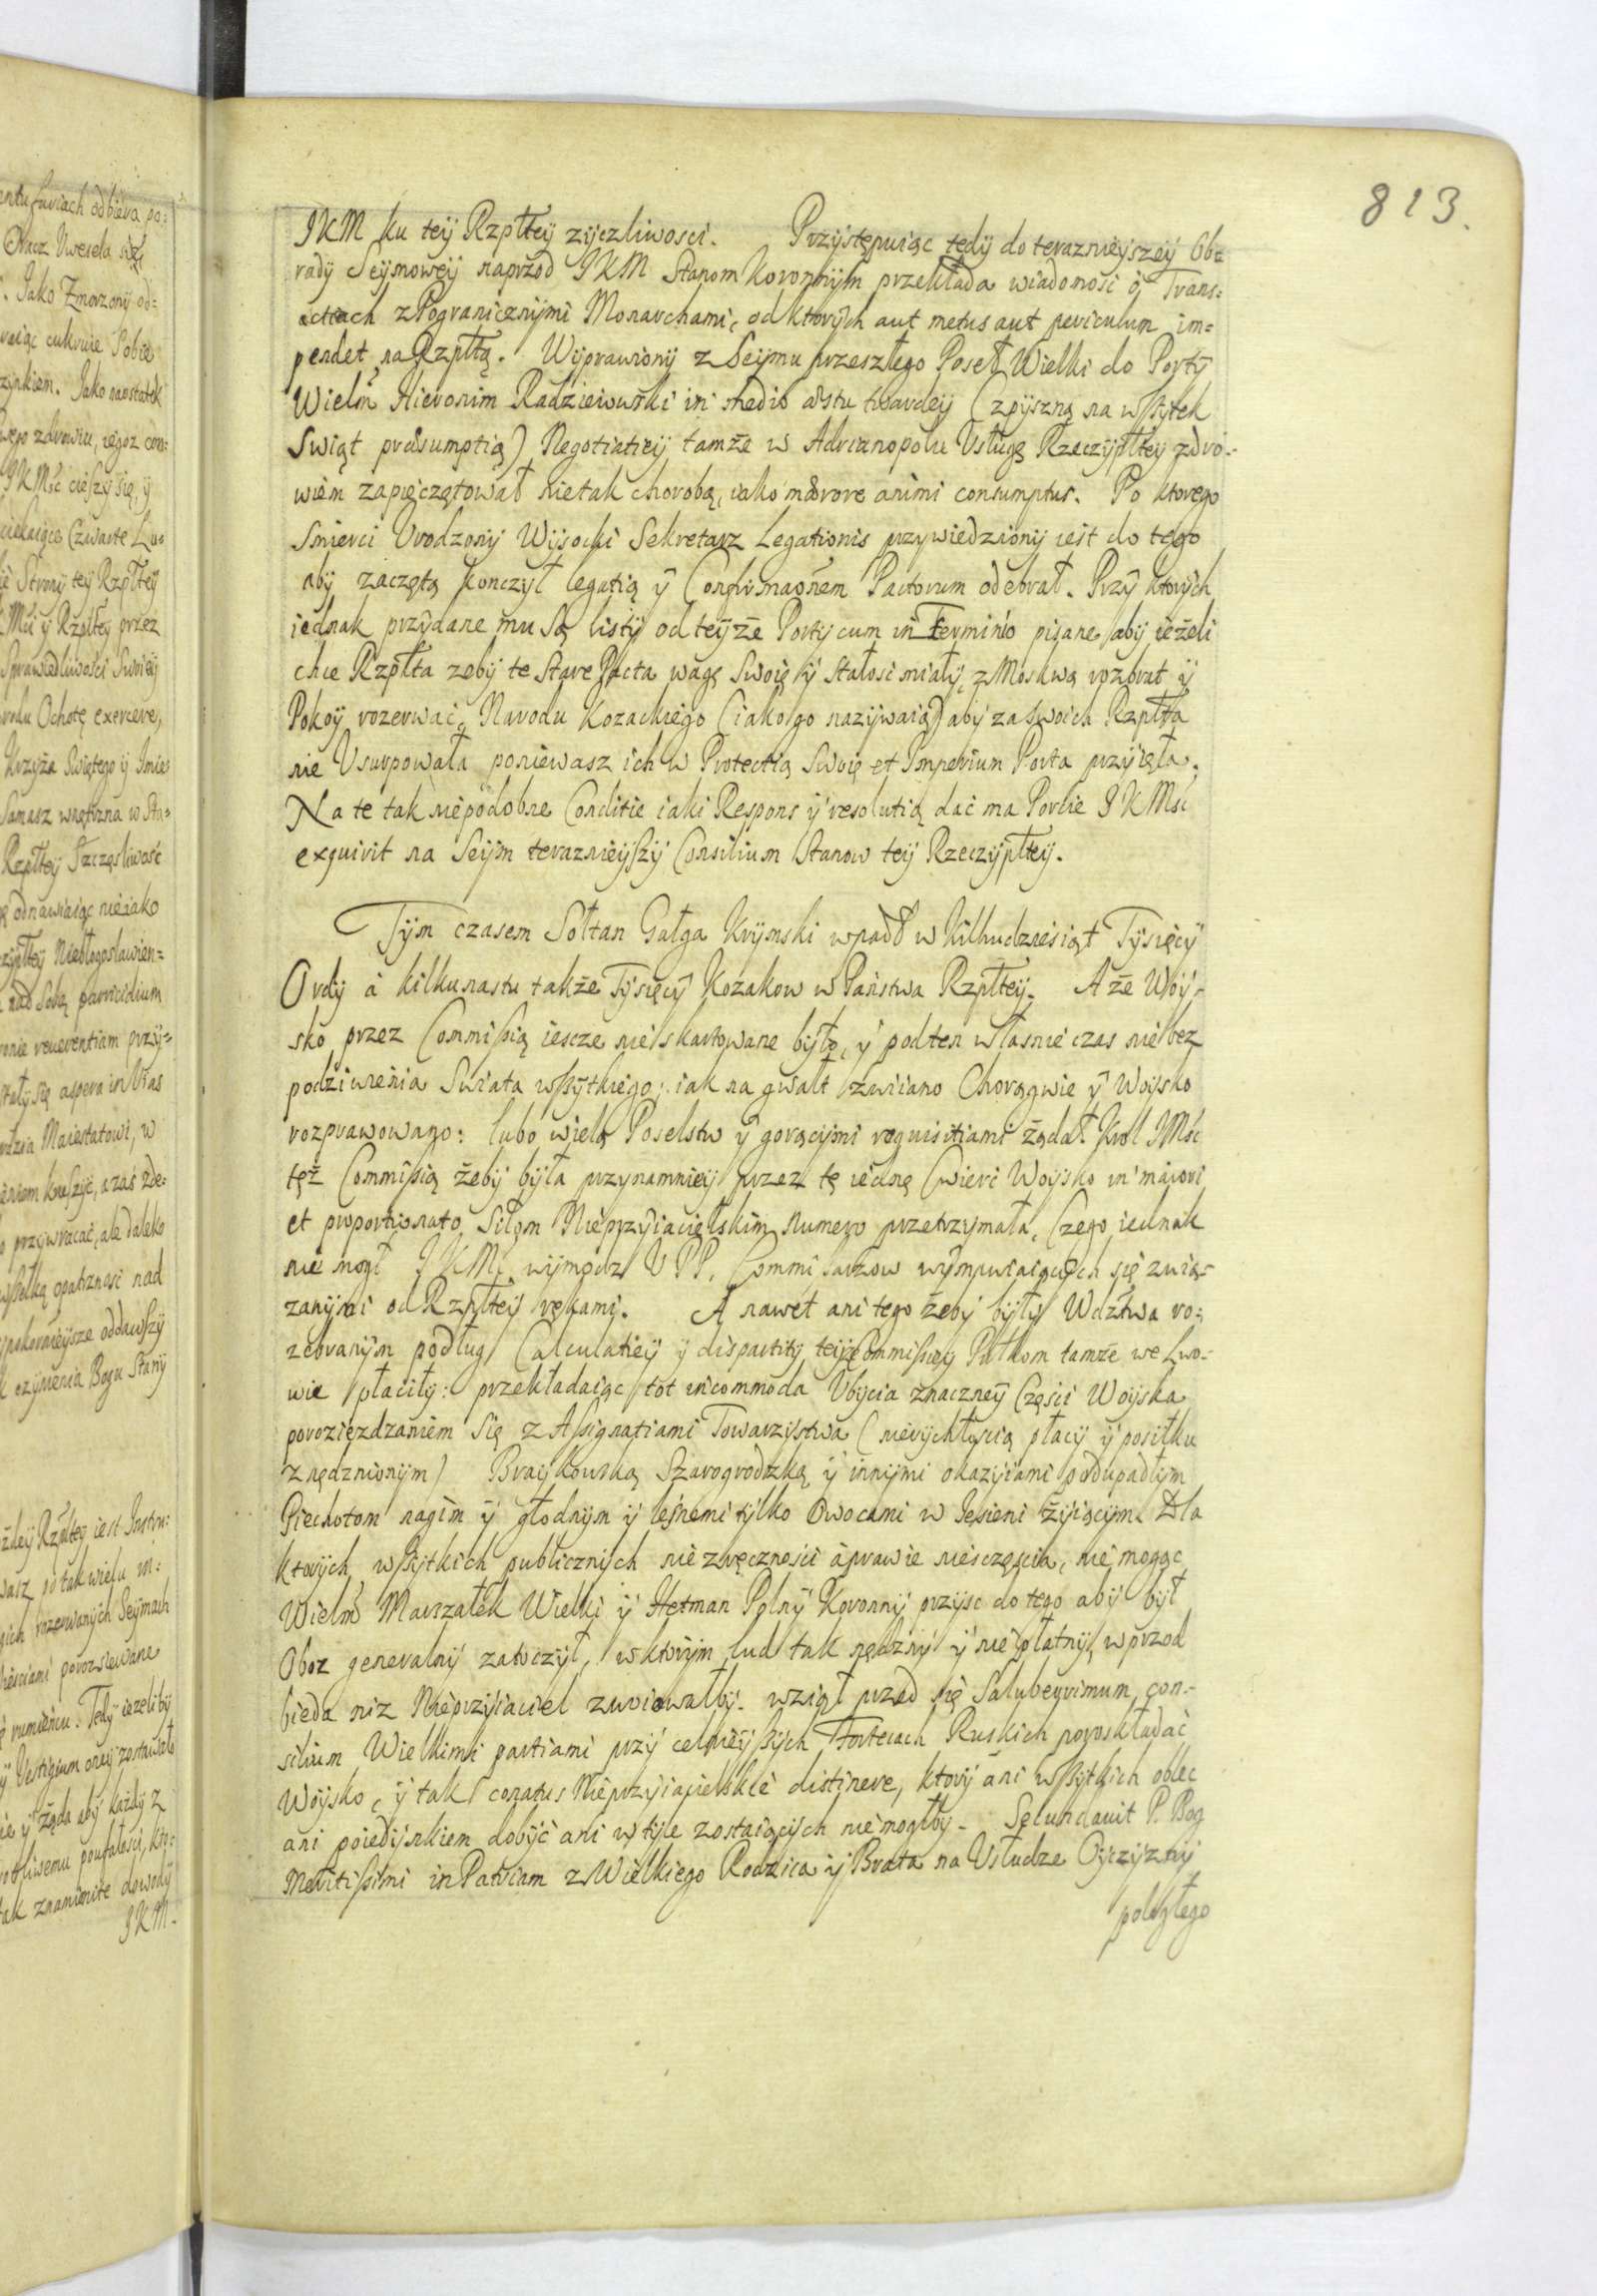 813.
JKM ku teÿ Rzpłteÿ zÿczliwosci. Przÿstępuiąc tedÿ do terazniejszeÿ Ob=
radÿ Seÿmoweÿ naprzod JKM Stanom Koronnÿm przekłada wiadomosć o Trans:
actiach z Pogranicznÿmi Monarchami, od ktorÿch aut metus aut periculum im=
pendet, na Rzpłtą. Wÿprawionÿ z Seÿmu przeszłego Poseł Wielki do Portÿ
Wielm Hieronim Radzieiowski in medio æstu twardeÿ (zpÿszną na wszÿtek
Swiat præsumptią) Negotiatieÿ tamże w Adrianopolu Usługę Rzeczÿpłteÿ zdro-
wiem zapięczętował nie tak chorobą, iako mærore animi consumptus. Po ktorego
Smierci Urodzonÿ Wÿsocki Sekretarz Legationis przÿwiedzionÿ iest do tego
abÿ zaczętą konczÿł legatią ÿ Confirmaoñem Pactorum odebrał. Przÿ ktorÿch
iednak przÿdane mu Są listÿ od teÿże Portÿ cum in Termino pisane abÿ ieżeli
chce Rzpłta zebÿ te Stare Pacta wagę Swoię ÿ stałosć miałÿ, z Moskwą rozbrat ÿ
Pokoÿ rozerwać, Narodu Kozackiego (iako go nazÿwaią) abÿ za swoich Rzpłta
nie Usurpowała poniewasz ich w Protectią Swoię et Imperium Porta przÿięła.
Na te tak niepodobne Conditie iaki Respons ÿ resolutią dać ma Porcie JKMsć
exquirit na Seÿm teraznieÿszÿ Consilium Stanow teÿ Rzeczÿpłteÿ.
Tÿm czasem Sołtan Gałga Krÿmski wpadł w kilkudziesiąt Tÿsięcÿ
Ordÿ a kilkunastu także Tÿsięcÿ Kozakow w Państwa Rzpłteÿ. A że Woÿ-
sko przez Commissią iescze nie skartowane bÿło, ÿ pod ten własnie czas nie bez
podziwienia Swiata wszÿtkiego; iak na gwałt zwiiano Chorągwie ÿ Woÿsko
rozprawowano: lubo wielą Poselstw ÿ gorącÿmi requisitiami żądał Krol JMsć
też Commissią żebÿ bÿła przynamnieÿ przez tę iednę Cwierć Woÿsko in maiori
et proportionato Siłom Nieprzÿiacielskim numero przetrzÿmała, Czego iednak
nie mogł JKMć wÿmodz U PP. Commissarzow wÿmpwiaiącÿch się zwią-
zanÿmi od Rzpłteÿ rękami. A nawet ani tego żebÿ bÿłÿ Wdztwa ro-
zebranÿm podług Calculatieÿ ÿ dispartitÿ teÿże Commissieÿ Pułkom tamże we Lwo-
wie płaciłÿ: przekładaiąc tot incommoda Ubÿcia znaczneÿ Częsci Woÿska
porozięzdzaniem się z Assignatiami Towarzÿstwa (nierÿchłoscią płacÿ ÿ posiłku
znędznionÿm) Braÿkowską Szarogrodzką ÿ innÿmi okazÿiami podupadłÿm
Piechotom nagim ÿ głodnÿm ÿ leśnemi tÿlko Owocami w Jesieni żÿiącÿm. Dla
ktorÿch wszÿtkich publicznÿch niezręcznosci a prawie niesczęscia, nie mogąc
Wielmᵒ Marszałek Wielki ÿ Hetman Polnÿ Koronnÿ przÿsc do tego abÿ bÿł
Oboz generalnÿ zatoczÿł, w ktorÿm lud tak nędznÿ ÿ nie płatnÿ, wprzod
bieda niz Nieprzÿiaciel zwoiowałbÿ. wziął przed się Saluberrimum con-
silium Wielkimi partiami przÿ celnieÿszÿch Fortecach Ruskich poroskładać
Woÿsko, ÿ tak conatus Nieprzÿiacielskie distinere, ktorÿ ani wszÿtkich oblec
ani poiedÿnkiem dobÿć ani w tÿle zostaiącÿch nie mogłbÿ. Secundavit P. Bog
Meritissimi in Patriam z Wielkiego Rodzica ÿ Brata na Usłudze Oÿczÿznÿ
poległego